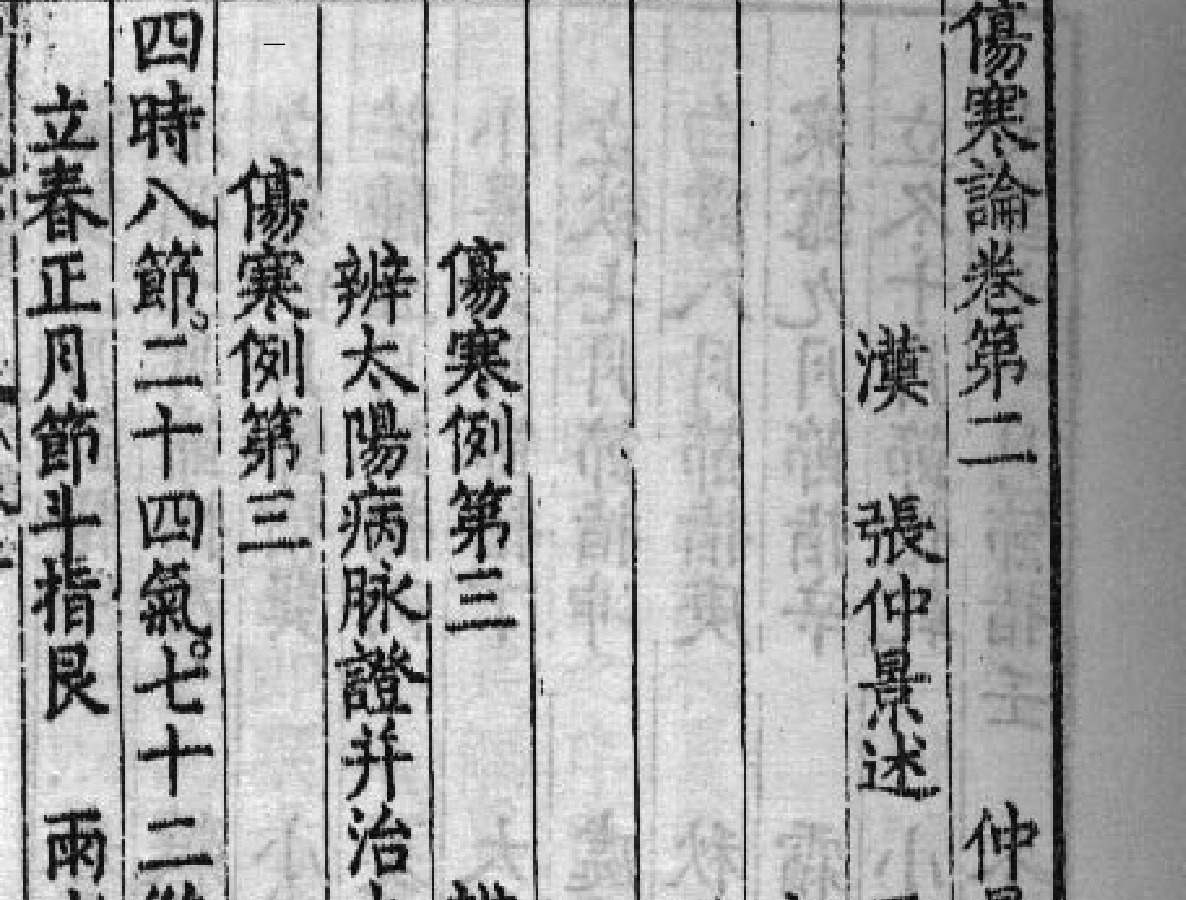 傷寒論卷第二 仲
漢 張仲景述
傷寒例第三
辨太陽病脉證并治
傷寒例第三
四時八節。二十四氣。七十二
立春正月節斗指艮 雨